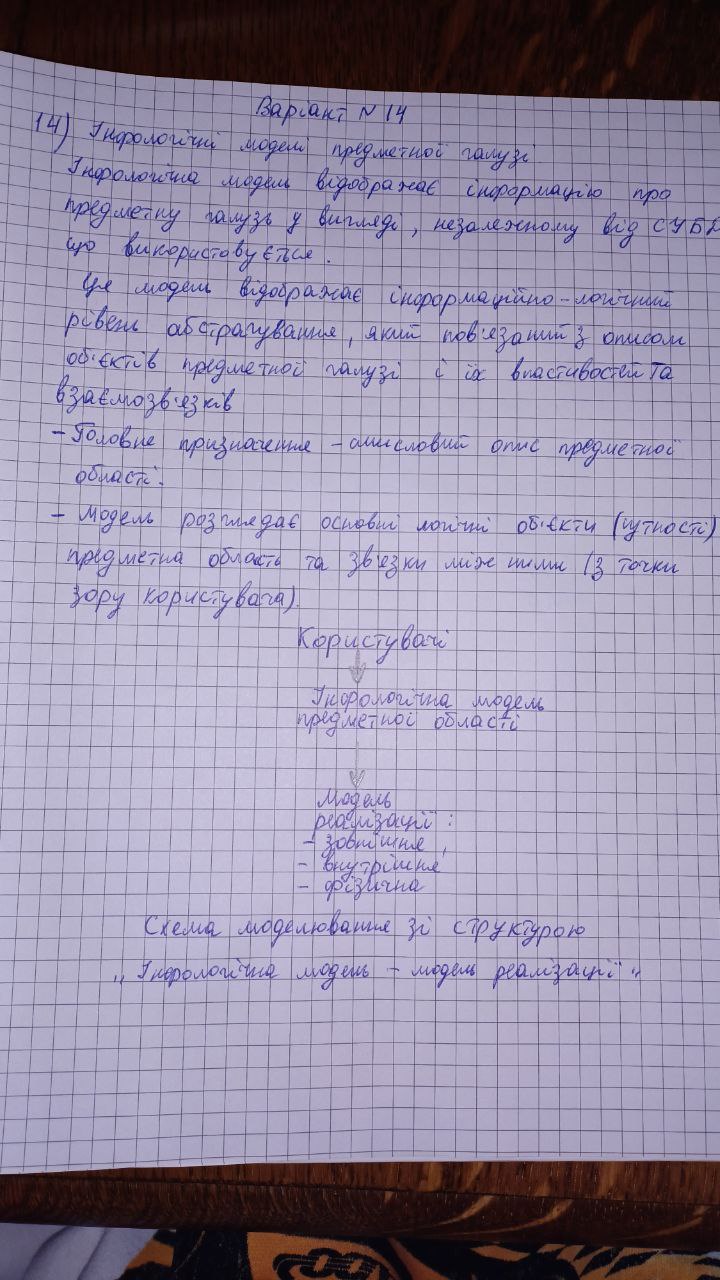 Варіант № 14
14) Інфологічні моделі предметної галузі
Інфологічна модель відображає інформацію про
предметну галузь у вигляді, незалежному від СУБД
що використовується.
Ця модель відображає інформаційно-логічний
рівень абстрагування, який пов'язаний з описом
об'єктів предметної галузі і їх властивостей та
взаємозв'язків
- Головне призначення - смисловий опис предметної
області.
- Модель розглядає основні логічні об'єкти (сутності)
предметна область та зв'язки між ними (з точки
зору користувача).
Користувачі
Інфологічна модель
предметної області
Модель
реалізації:
- зовнішня,
- внутрішня
- фізична
Схема моделювання зі структурою
„Інфологічна модель - модель реалізації“